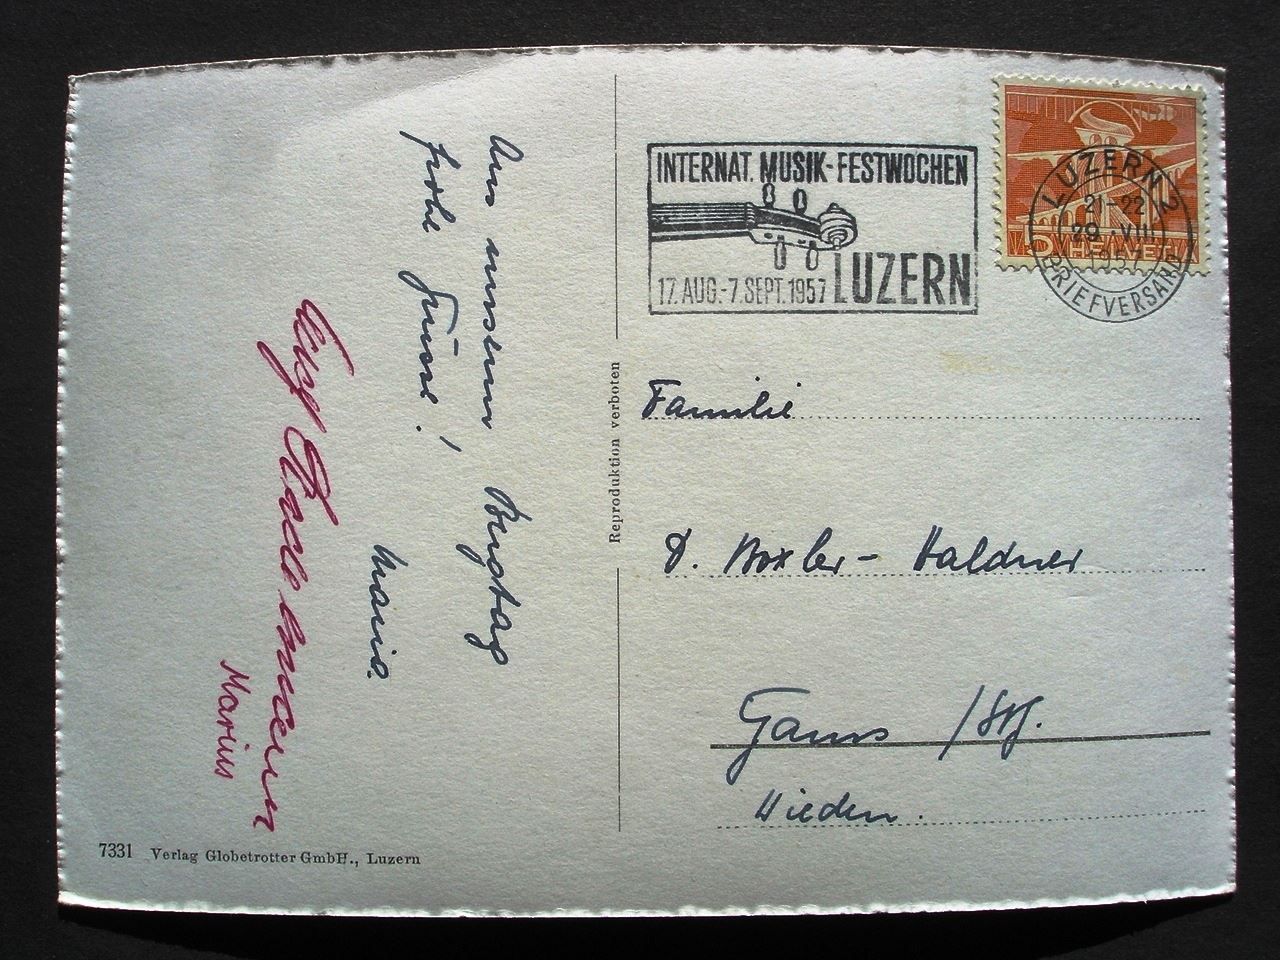 INTERNAT. MUSIK-FESTWOCHEN
17. AUG.-7. SEPT. 1957 LUZERN
LUZERN 2
21-22
29. VII
1957
BRIEFVERSAND
5 HELVETIA
Aus unserm Bergtag
frohe Grüsse!
Maria.
Marius
Reproduktion verboten
Familie
D. Boxler-Haldner
Gams /StG.
Wieden.
7331 Verlag Globetrotter GmbH., Luzern